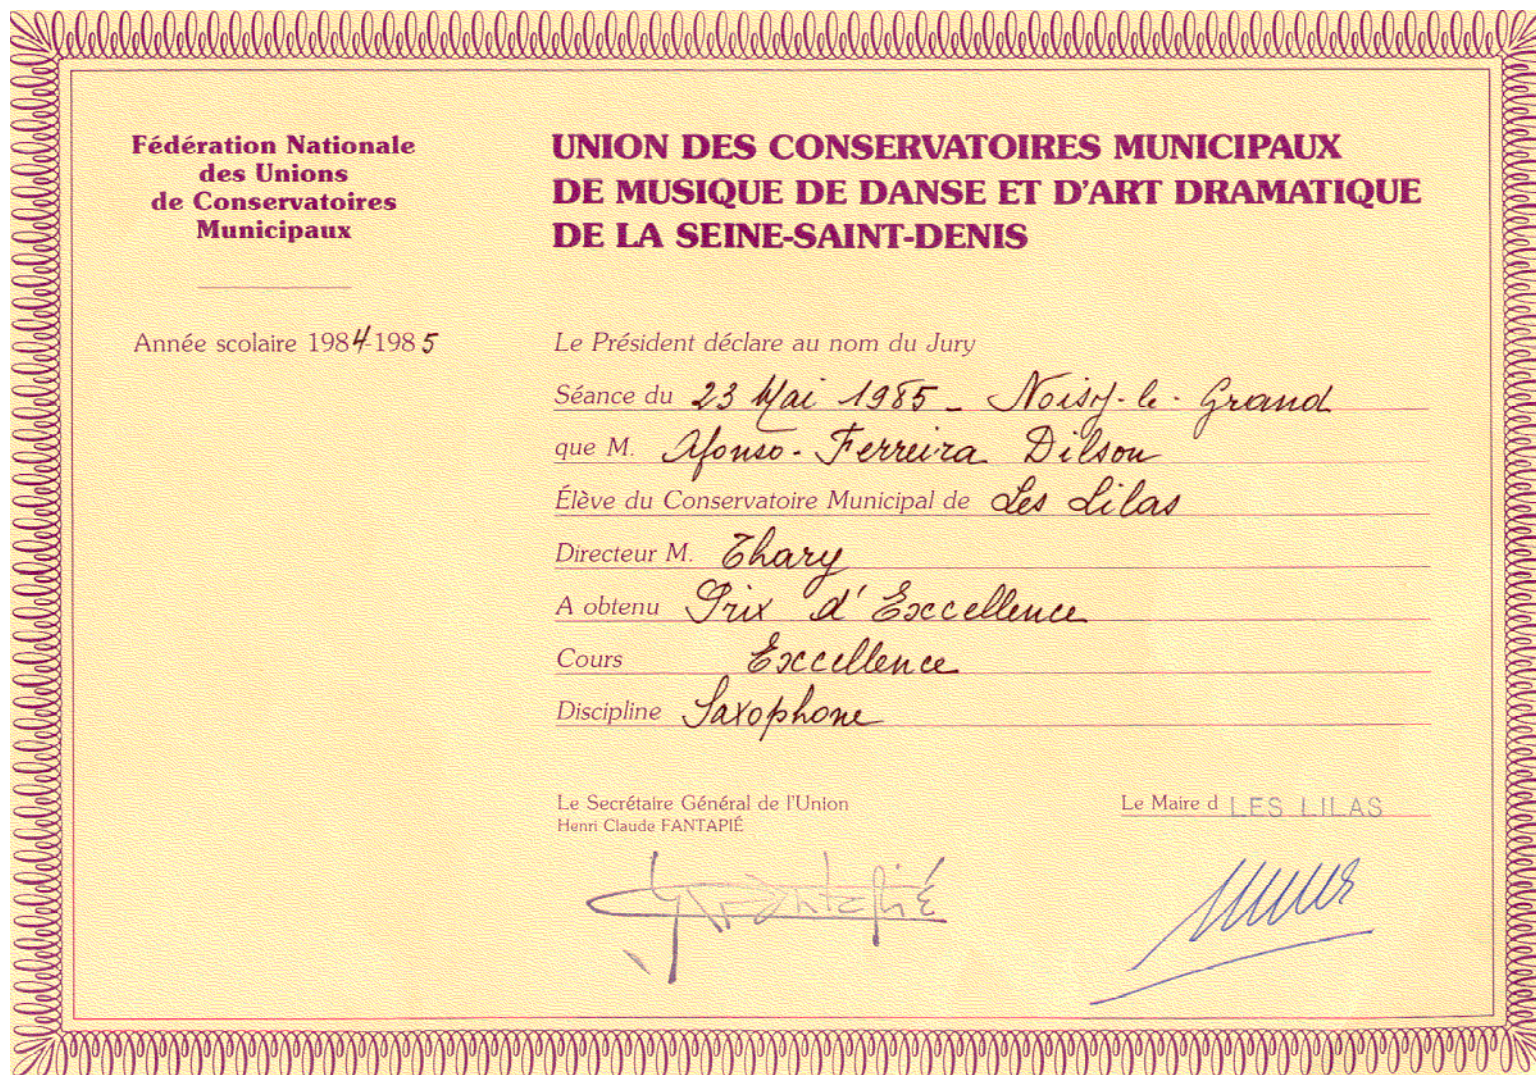 Fédération Nationale
des Unions
de Conservatoires
Municipaux
Année scolaire 1984-1985
UNION DES CONSERVATOIRES MUNICIPAUX
DE MUSIQUE DE DANSE ET D'ART DRAMATIQUE
DE LA SEINE-SAINT-DENIS
Le Président déclare au nom du Jury
Séance du 23 Mai 1985 - Noisy-le-Grand
que M. Afonso-Ferreira Dilson
Élève du Conservatoire Municipal de Les Lilas
Directeur M. Thary
A obtenu Prix d'Excellence
Cours Excellence
Discipline Saxophone
Le Secrétaire Général de l'Union
Henri Claude FANTAPIÉ
Le Maire d LES LILAS
Fantapié